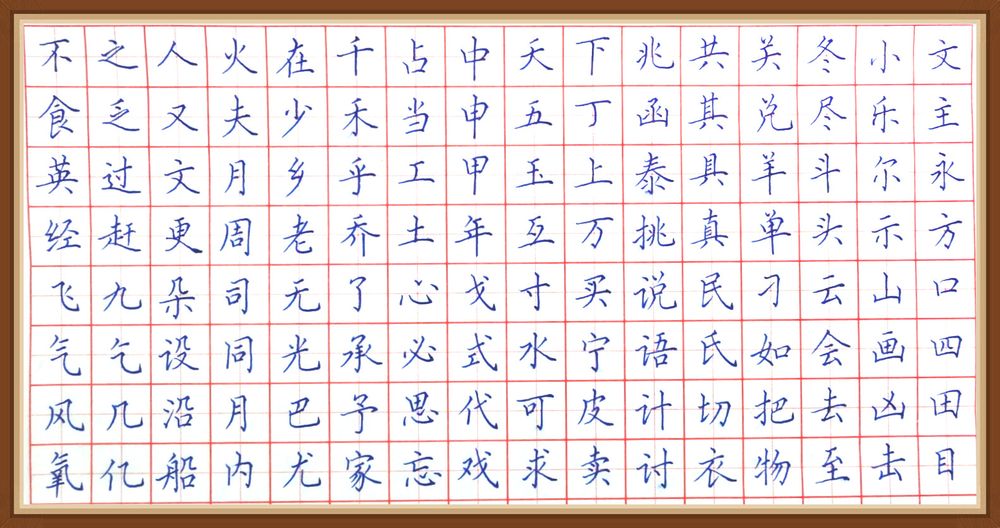 不之人火在千占中天下兆共关冬小文
食乏又夫少禾当申五丁函其兑尽乐主
英过文月乡乎工甲玉上泰具羊斗尔永
经赶更周老乔土年互万挑真单头示方
飞九朵司无了心戈寸买说民刁云山口
气乞设同光承必式水宁语氏如会画四
风几沿月巴予思代可皮计切把去凶田
氧亿船内尤家忘戏求卖讨衣物至击目